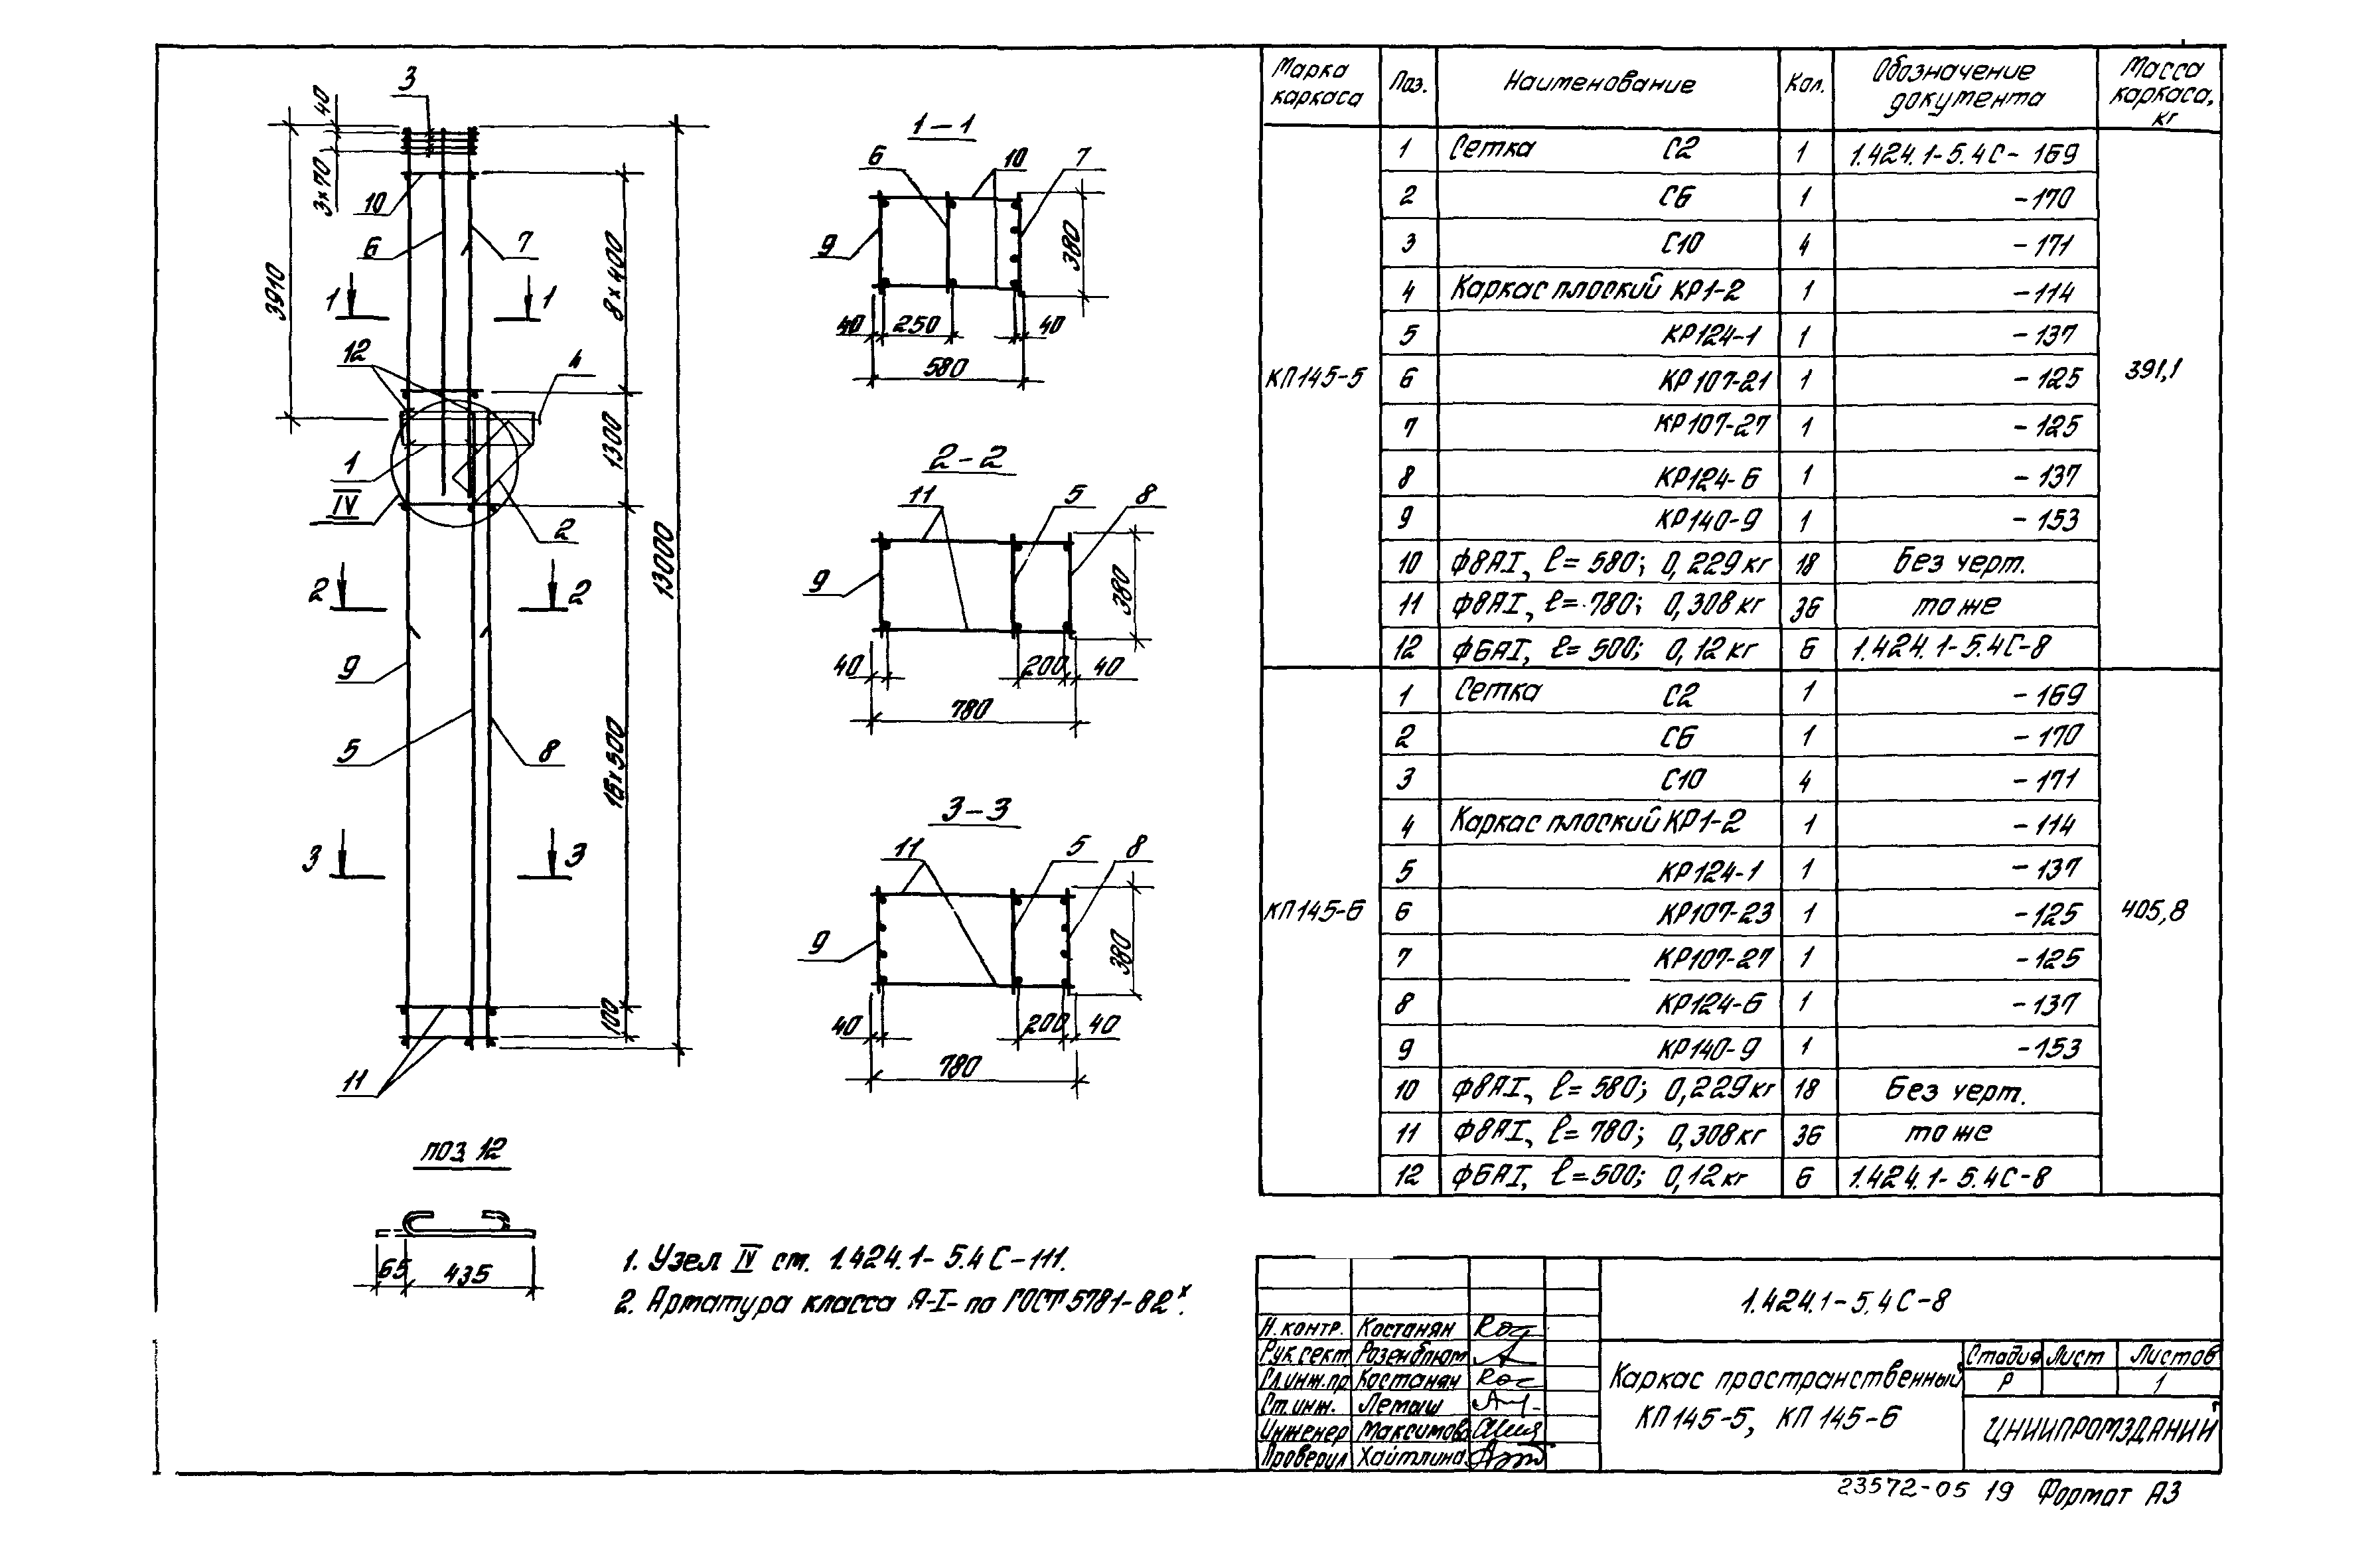 3
40
3×70
10
6
7
3910
1
1
8×400
12
4
1300
1
IV
2
13000
2
2
9
5
8
15×500
3
3
100
11
1-1
6
10
7
9
380
40
250
40
580
2-2
11
5
8
9
380
40
200
40
780
3-3
11
5
8
9
380
40
200
40
780
поз. 12
65
435
1. Узел IV см. 1.424.1-5.4С-111.
2. Арматура класса А-I- по ГОСТ 5781-82ˣ.
Марка каркаса Поз. Наименование Кол. Обозначение документа Масса каркаса, кг
КП145-5 391,1
1 Сетка С2 1 1.424.1-5.4С-169
2 С6 1 -170
3 С10 4 -171
4 Каркас плоский КР1-2 1 -114
5 КР124-1 1 -137
6 КР107-21 1 -125
7 КР107-27 1 -125
8 КР124-6 1 -137
9 КР140-9 1 -153
10 Ф8АI, ℓ=580; 0,229кг 18 Без черт.
11 Ф8АI, ℓ=780; 0,308кг 36 то же
12 Ф6АI, ℓ=500; 0,12кг 6 1.424.1-5.4С-8
КП145-6 405,8
1 Сетка С2 1 -169
2 С6 1 -170
3 С10 4 -171
4 Каркас плоский КР1-2 1 -114
5 КР124-1 1 -137
6 КР107-23 1 -125
7 КР107-27 1 -125
8 КР124-6 1 -137
9 КР140-9 1 -153
10 Ф8АI, ℓ=580; 0,229кг 18 Без черт.
11 Ф8АI, ℓ=780; 0,308кг 36 то же
12 Ф6АI, ℓ=500; 0,12кг 6 1.424.1-5.4С-8
1.424.1-5.4С-8
Н.контр. Костанян
Рук.сект. Розенблюм
Гл.инж.пр. Костанян
Ст.инж. Лемыш
Инженер Максимова
Проверил Хаитлина
Каркас пространственный
КП145-5, КП145-6
Стадия Лист Листов
Р 1
ЦНИИПРОМЗДАНИЙ
23572-05 19 Формат А3